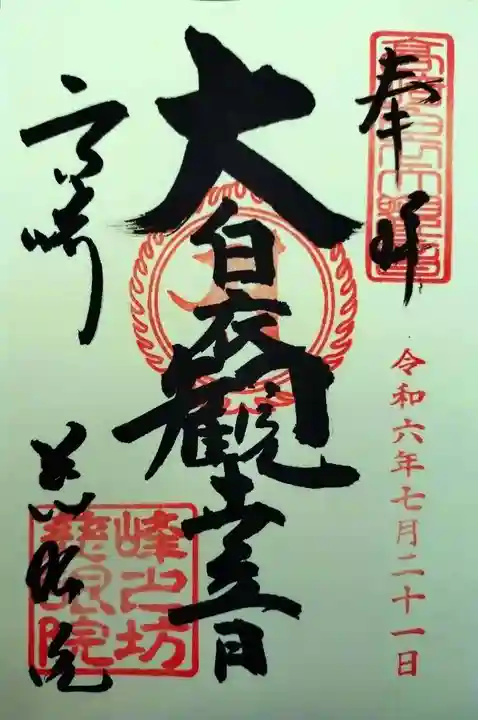 奉拝
高崎白衣大観音
令和六年七月二十一日
大白衣観世音
高崎
慈眼院
峰之坊
慈眼院